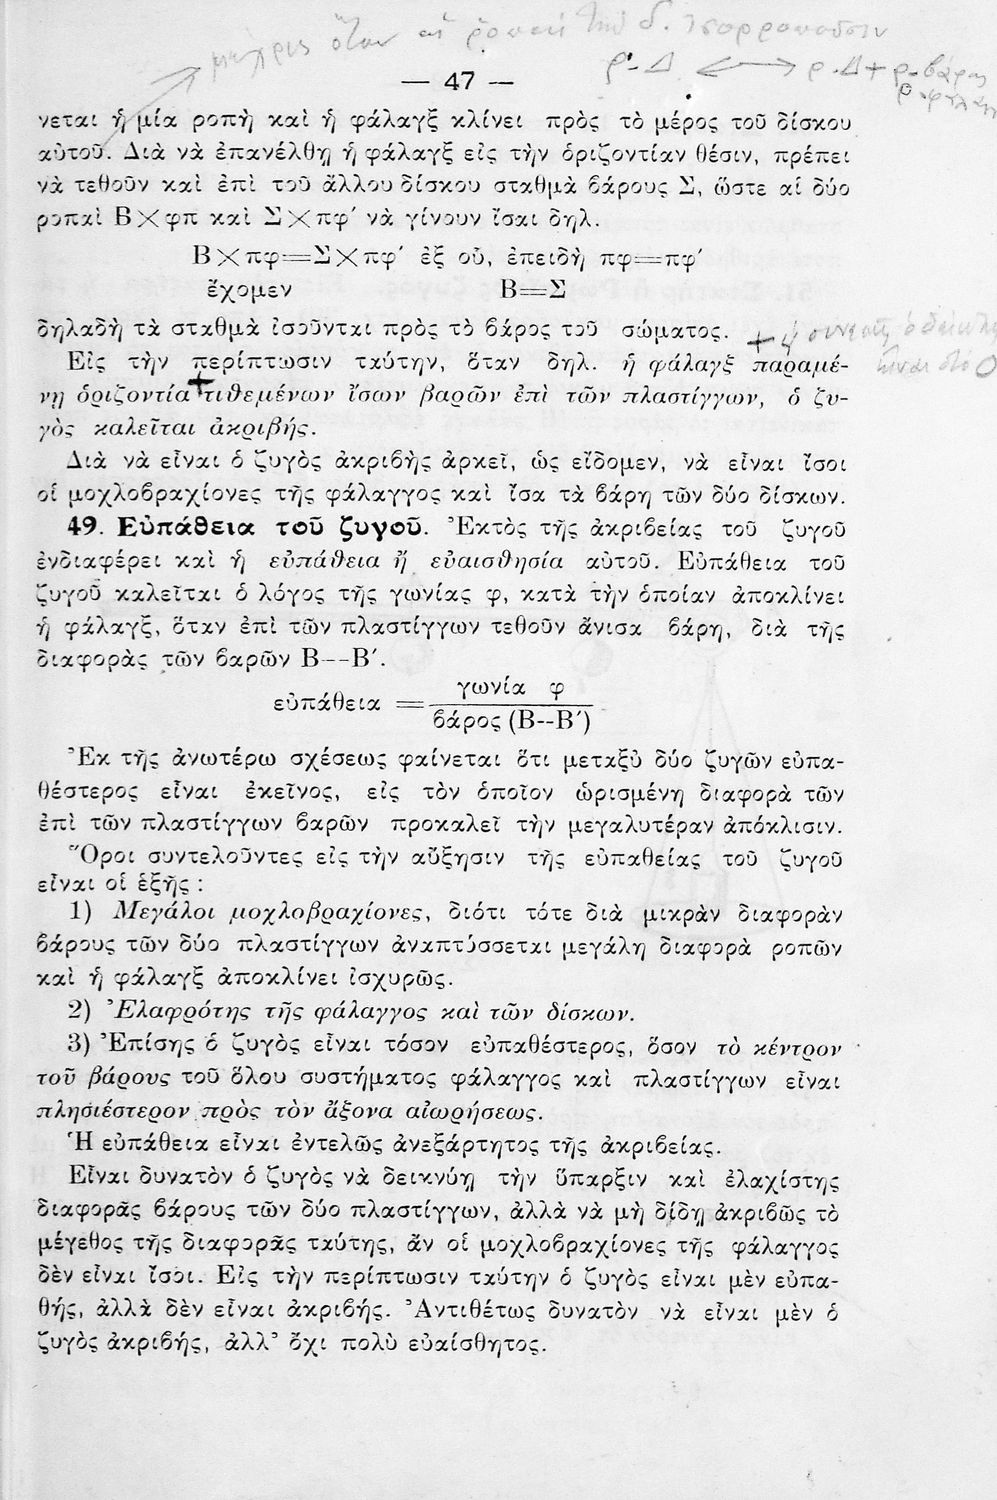 μέχρις ὅταν αἱ ῥοπαὶ τῶν δ. ἰσορροπήσουν
— 47 —
νεται ἡ μία ροπὴ καὶ ἡ φάλαγξ κλίνει πρὸς τὸ μέρος τοῦ δίσκου
αὐτοῦ. Διὰ νὰ ἐπανέλθῃ ἡ φάλαγξ εἰς τὴν ὁριζοντίαν θέσιν, πρέπει
νὰ τεθοῦν καὶ ἐπὶ τοῦ ἄλλου δίσκου σταθμὰ βάρους Σ, ὥστε αἱ δύο
ροπαὶ Β×φπ καὶ Σ×πφ′ νὰ γίνουν ἴσαι δηλ.
Β×πφ=Σ×πφ′ ἐξ οὗ, ἐπειδὴ πφ=πφ′
ἔχομεν Β=Σ
δηλαδὴ τὰ σταθμὰ ἰσοῦνται πρὸς τὸ βάρος τοῦ σώματος.
Εἰς τὴν περίπτωσιν ταύτην, ὅταν δηλ. ἡ φάλαγξ παραμέ-
νῃ ὁριζοντία τιθεμένων ἴσων βαρῶν ἐπὶ τῶν πλαστίγγων, ὁ ζυ-
γὸς καλεῖται ἀκριβής.
Διὰ νὰ εἶναι ὁ ζυγὸς ἀκριβὴς ἀρκεῖ, ὡς εἴδομεν, νὰ εἶναι ἴσοι
οἱ μοχλοβραχίονες τῆς φάλαγγος καὶ ἴσα τὰ βάρη τῶν δύο δίσκων.
49. Εὐπάθεια τοῦ ζυγοῦ. Ἐκτὸς τῆς ἀκριβείας τοῦ ζυγοῦ
ἐνδιαφέρει καὶ ἡ εὐπάθεια ἢ εὐαισθησία αὐτοῦ. Εὐπάθεια τοῦ
ζυγοῦ καλεῖται ὁ λόγος τῆς γωνίας φ, κατὰ τὴν ὁποίαν ἀποκλίνει
ἡ φάλαγξ, ὅταν ἐπὶ τῶν πλαστίγγων τεθοῦν ἄνισα βάρη, διὰ τῆς
διαφορᾶς τῶν βαρῶν Β--Β′.
γωνία φ
εὐπάθεια =
βάρος (Β--Β′)
Ἐκ τῆς ἀνωτέρω σχέσεως φαίνεται ὅτι μεταξὺ δύο ζυγῶν εὐπα-
θέστερος εἶναι ἐκεῖνος, εἰς τὸν ὁποῖον ὡρισμένη διαφορὰ τῶν
ἐπὶ τῶν πλαστίγγων βαρῶν προκαλεῖ τὴν μεγαλυτέραν ἀπόκλισιν.
Ὅροι συντελοῦντες εἰς τὴν αὔξησιν τῆς εὐπαθείας τοῦ ζυγοῦ
εἶναι οἱ ἑξῆς :
1) Μεγάλοι μοχλοβραχίονες, διότι τότε διὰ μικρὰν διαφορὰν
βάρους τῶν δύο πλαστίγγων ἀναπτύσσεται μεγάλη διαφορὰ ροπῶν
καὶ ἡ φάλαγξ ἀποκλίνει ἰσχυρῶς.
2) Ἐλαφρότης τῆς φάλαγγος καὶ τῶν δίσκων.
3) Ἐπίσης ὁ ζυγὸς εἶναι τόσον εὐπαθέστερος, ὅσον τὸ κέντρον
τοῦ βάρους τοῦ ὅλου συστήματος φάλαγγος καὶ πλαστίγγων εἶναι
πλησιέστερον πρὸς τὸν ἄξονα αἰωρήσεως.
Ἡ εὐπάθεια εἶναι ἐντελῶς ἀνεξάρτητος τῆς ἀκριβείας.
Εἶναι δυνατὸν ὁ ζυγὸς νὰ δεικνύῃ τὴν ὕπαρξιν καὶ ἐλαχίστης
διαφορᾶς βάρους τῶν δύο πλαστίγγων, ἀλλὰ νὰ μὴ δίδῃ ἀκριβῶς τὸ
μέγεθος τῆς διαφορᾶς ταύτης, ἂν οἱ μοχλοβραχίονες τῆς φάλαγγος
δὲν εἶναι ἴσοι. Εἰς τὴν περίπτωσιν ταύτην ὁ ζυγὸς εἶναι μὲν εὐπα-
θής, ἀλλὰ δὲν εἶναι ἀκριβής. Ἀντιθέτως δυνατὸν νὰ εἶναι μὲν ὁ
ζυγὸς ἀκριβής, ἀλλ᾽ ὄχι πολὺ εὐαίσθητος.